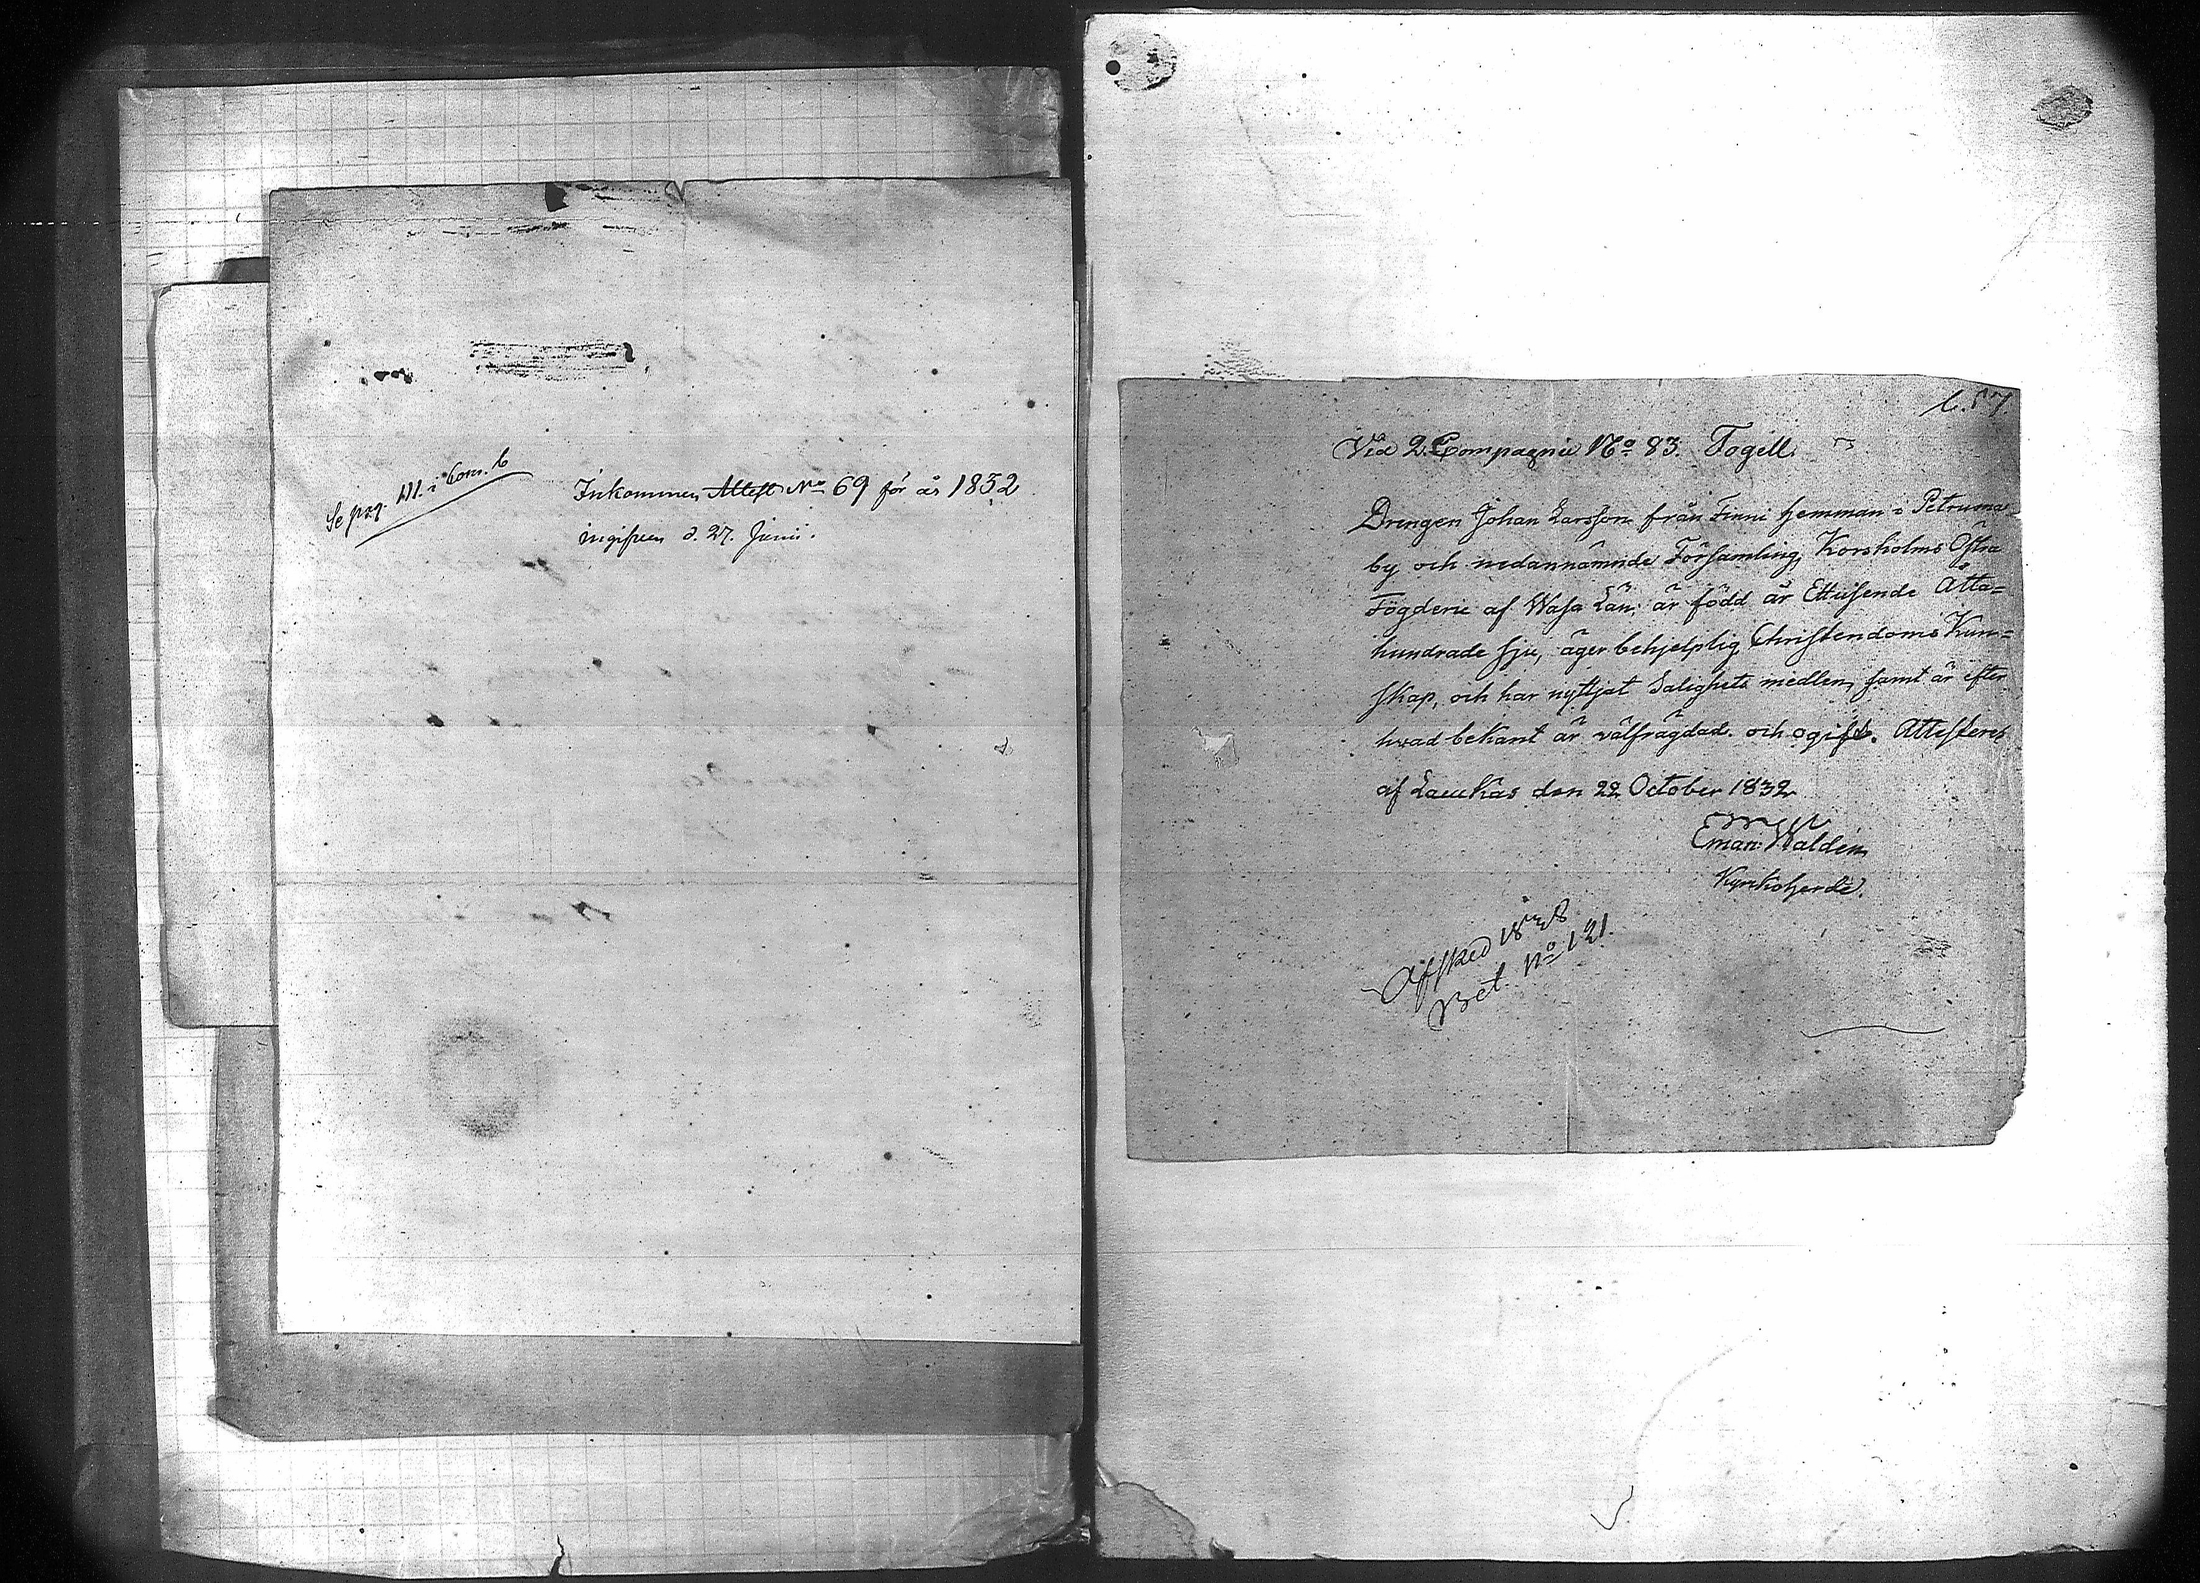 Se pag. 111. i Com. b
Inkommen Attest No 69 för år 1832
ingifven d. 27. Junii.
Vid 2. Compagnie No 83. Fogell
Drengen Johan Larsson från Finni hemman i Petruma
by och nedannämnde Församling, Korsholms Östra
Fögderie af Wasa Län; är född år Ettusende Åtta=
hundrade sju, äger behjelplig Christendoms Kun=
skap, och har nyttjat Salighets medlen, samt är efter
hvad bekant är välfrägdad och ogift. Attesteres
af Laukas den 22 October 1832
Eman: Waldén
Kyrkoherde.
Afsked 1838
Bet. No 121.